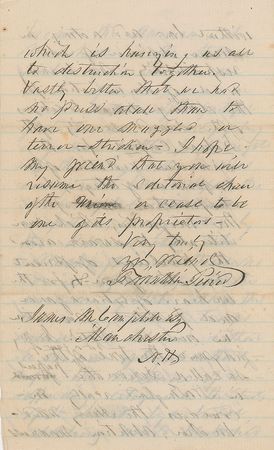 which is hurrying us all
to destruction together.
Vastly better that we had
no press at all than to
have one muzzled or
terror-stricken - I hope
my friend that you will
resume the editorial chair
of the Union or cease to be
one of its proprietors -
Very truly
yr friend
Franklin Pierce
James M Campbell Esq
Manchester
N.H